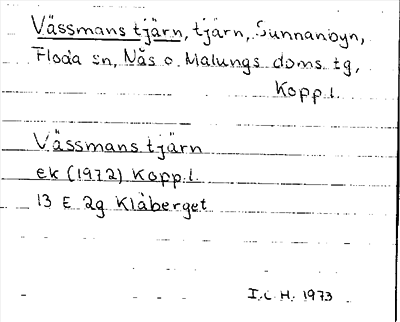 Vässmans tjärn, tjärn, Sunnanbyn,
Floda sn, Nås o. Malungs doms. tg,
Kopp.l.
Vässmans tjärn
ek (1972) Kopp.l.
13 E 2g Klåberget
I.L.H. 1973